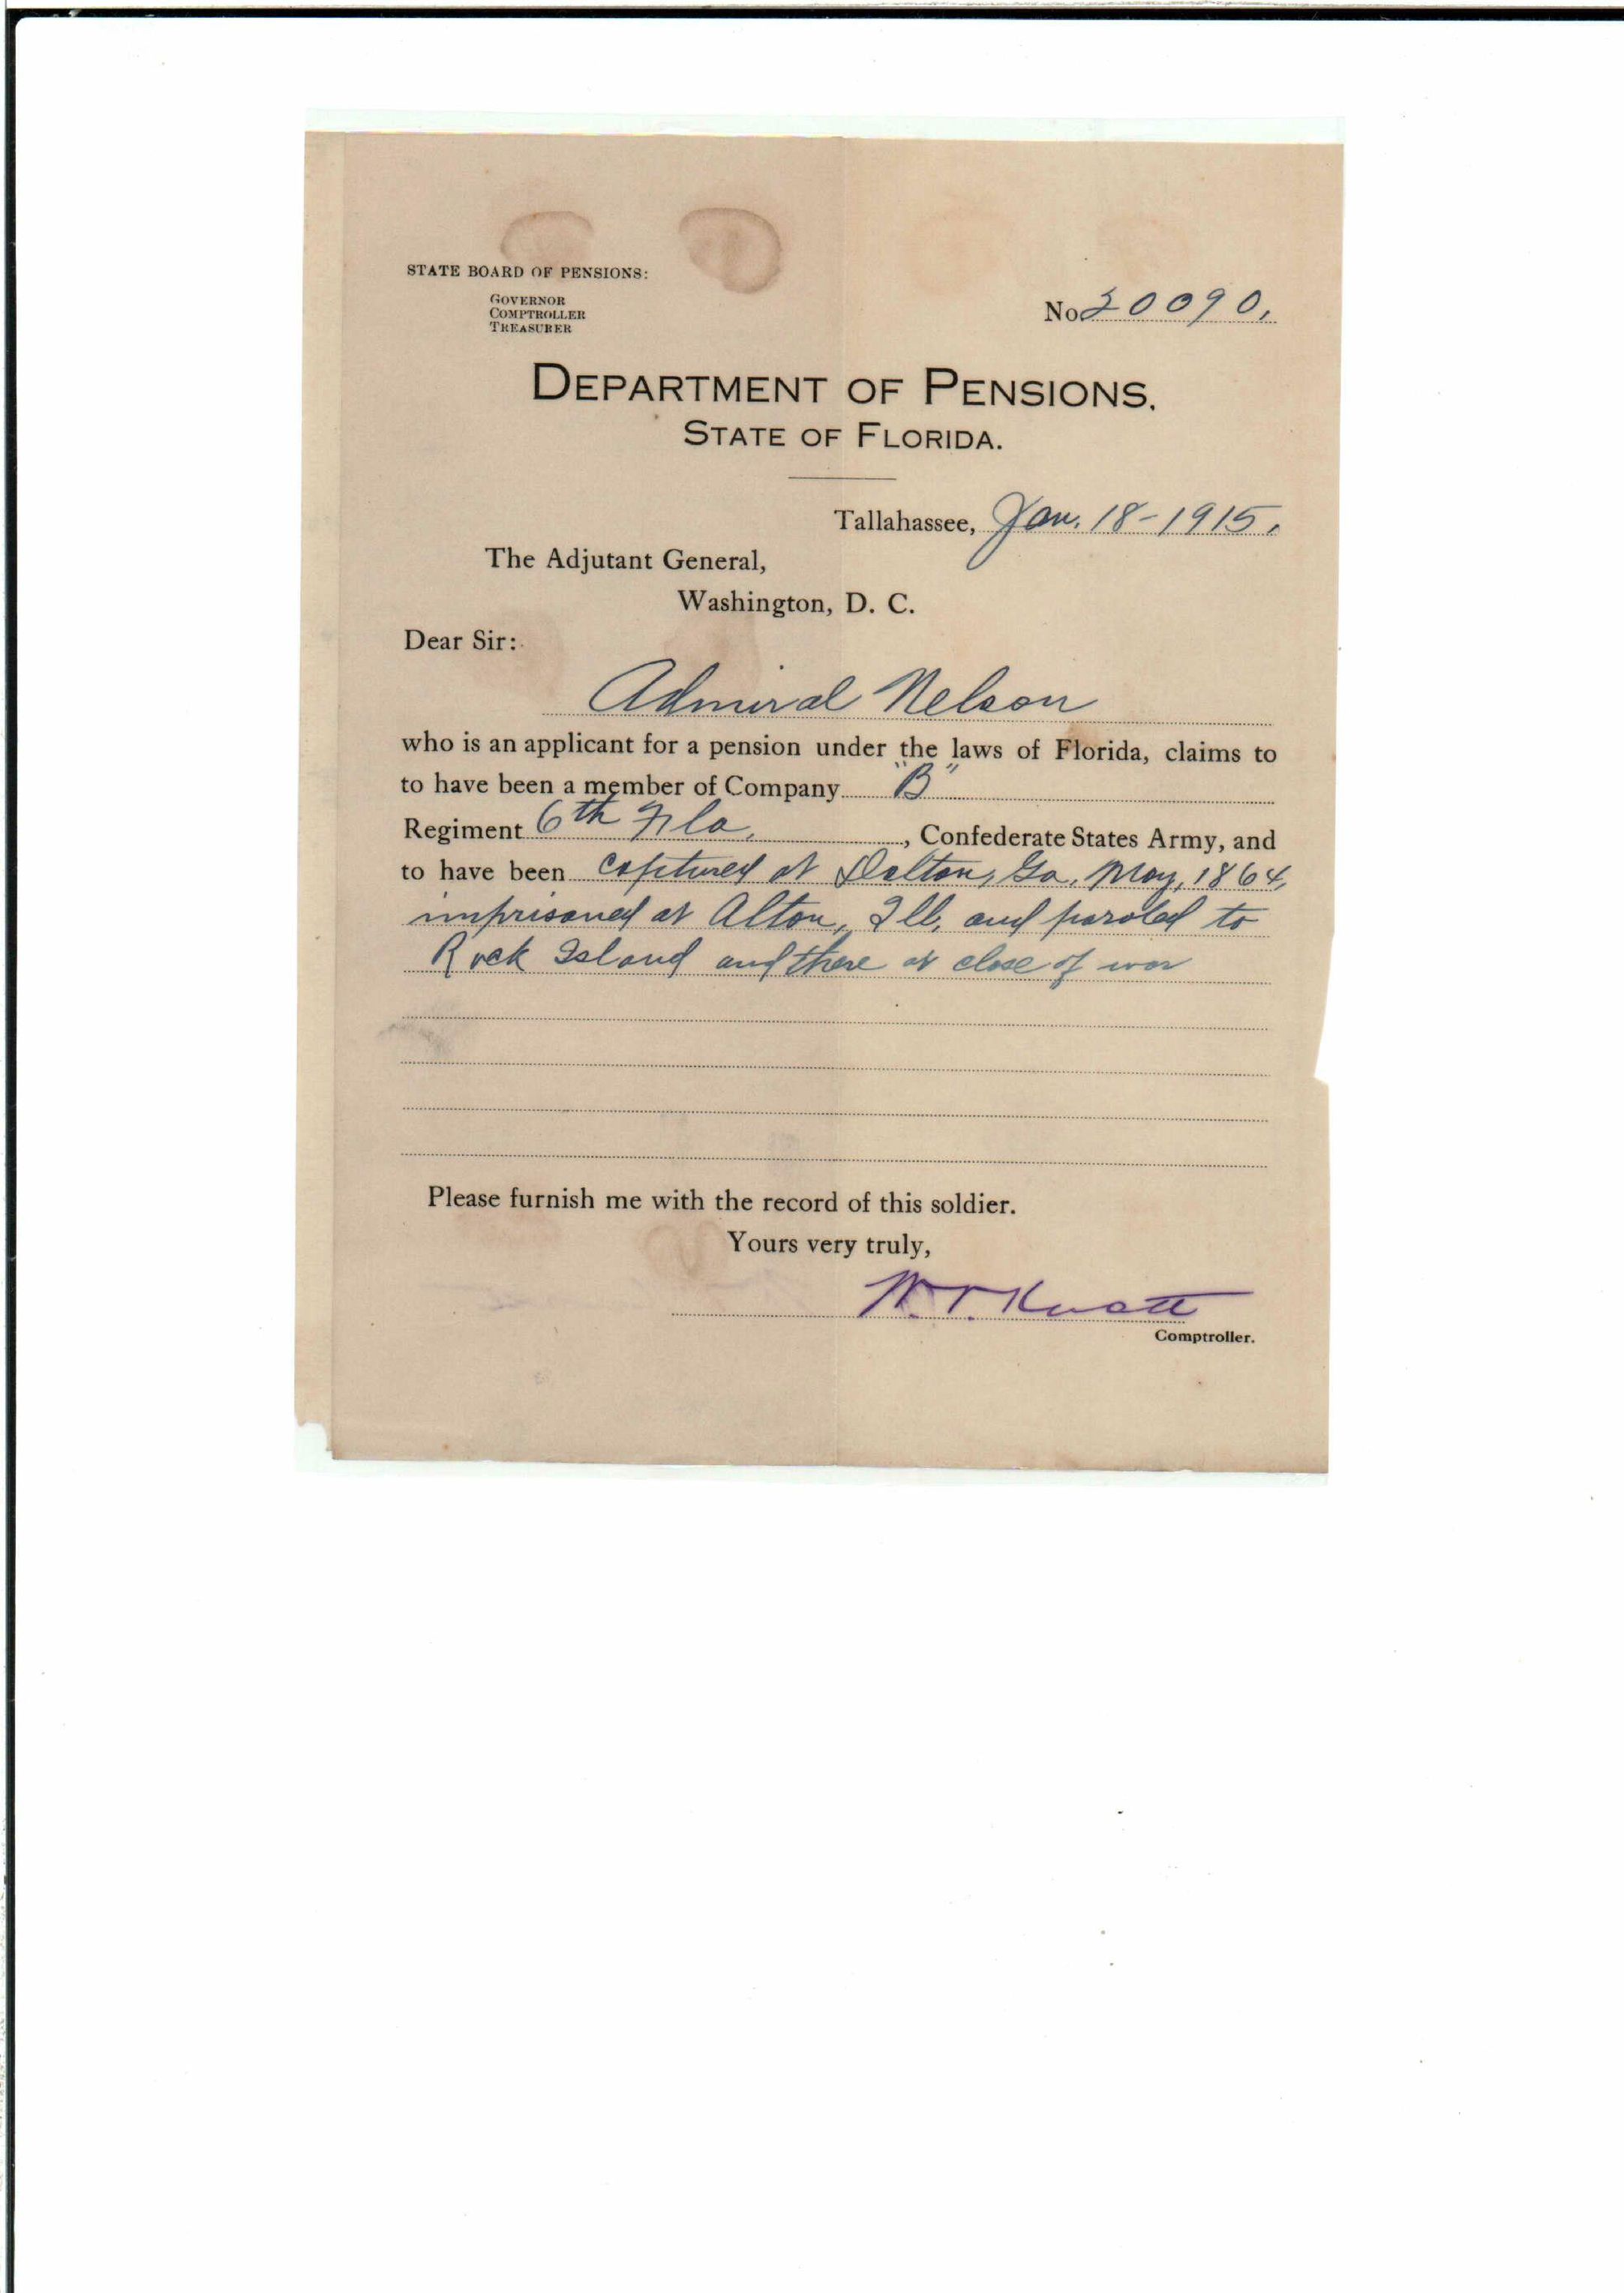 STATE BOARD OF PENSIONS:
GOVERNOR
COMPTROLLER
TREASURER
No. 20090.
DEPARTMENT OF PENSIONS.
STATE OF FLORIDA.
Tallahassee, Jan. 18-1915.
The Adjutant General,
Washington, D. C.
Dear Sir:
Admiral Nelson
who is an applicant for a pension under the laws of Florida, claims to
to have been a member of Company "B"
Regiment 6th Fla. , Confederate States Army, and
to have been captured at Dalton, Ga. May, 1864,
imprisoned at Alton, Ill, and paroled to
Rock Island and there at close of war
Please furnish me with the record of this soldier.
Yours very truly,
W. V. Knott
Comptroller.